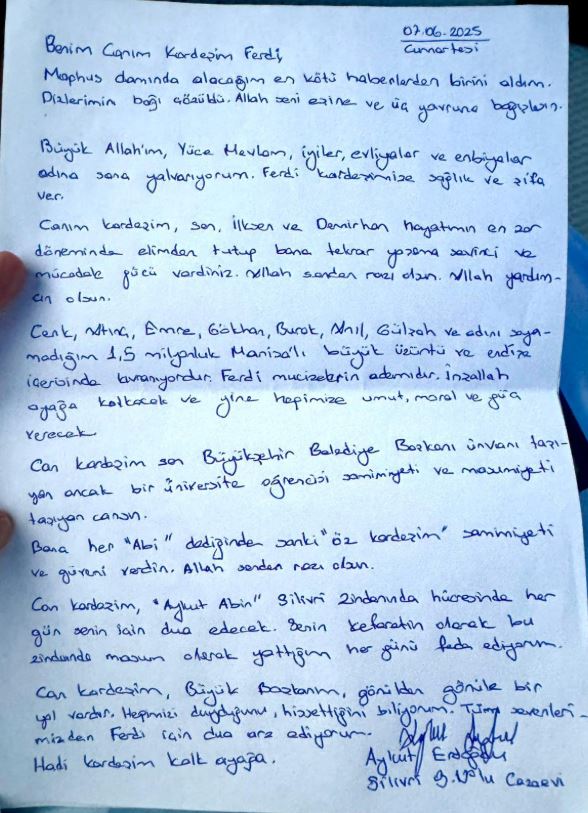 07.06.2025
Cumartesi
Benim Canım Kardeşim Ferdi,
Maphus damında alacağım en kötü haberlerden birini aldım.
Dizlerimin bağı çözüldü. Allah seni eşine ve üç yavruna bağışlasın.
Büyük Allah'ım, Yüce Mevlam, iyiler, evliyalar ve enbiyalar
adına sana yalvarıyorum. Ferdi kardeşimize sağlık ve şifa
ver.
Canım kardeşim, sen, İlksen ve Demirhan hayatımın en zor
döneminde elimden tutup bana tekrar yaşama sevinci ve
mücadele gücü verdiniz. Allah senden razı olsun. Allah yardım-
cın olsun.
Cenk, Atınç, Emre, Gökhan, Burak, Anıl, Gülşah ve adını saya-
madığım 1,5 milyonluk Manisa'lı büyük üzüntü ve endişe
içerisinde kıvranıyordur. Ferdi mucizelerin adamıdır. İnşallah
ayağa kalkacak ve yine hepimize umut, moral ve güç
verecek.
Can kardeşim sen Büyükşehir Belediye Başkanı ünvanı taşı-
yan ancak bir üniversite öğrencisi samimiyeti ve masumiyeti
taşıyan cansın.
Bana her "Abi" dediğinde sanki "öz kardeşim" samimiyeti
ve güveni verdin. Allah senden razı olsun.
Can kardeşim, "Aykut Abin" Silivri zindanında hücresinde her
gün senin için dua edecek. Senin kefaretin olarak bu
zindanda masum olarak yattığım her günü feda ediyorum.
Can kardeşim, Büyük Başkanım, gönülden gönüle bir
yol vardır. Hepimizi duyduğunu, hissettiğini biliyorum. Tüm sevenleri-
mizden Ferdi için dua arz ediyorum.
Hadi kardeşim kalk ayağa.
Aykut Erdoğdu
Silivri 9. No'lu Cezaevi